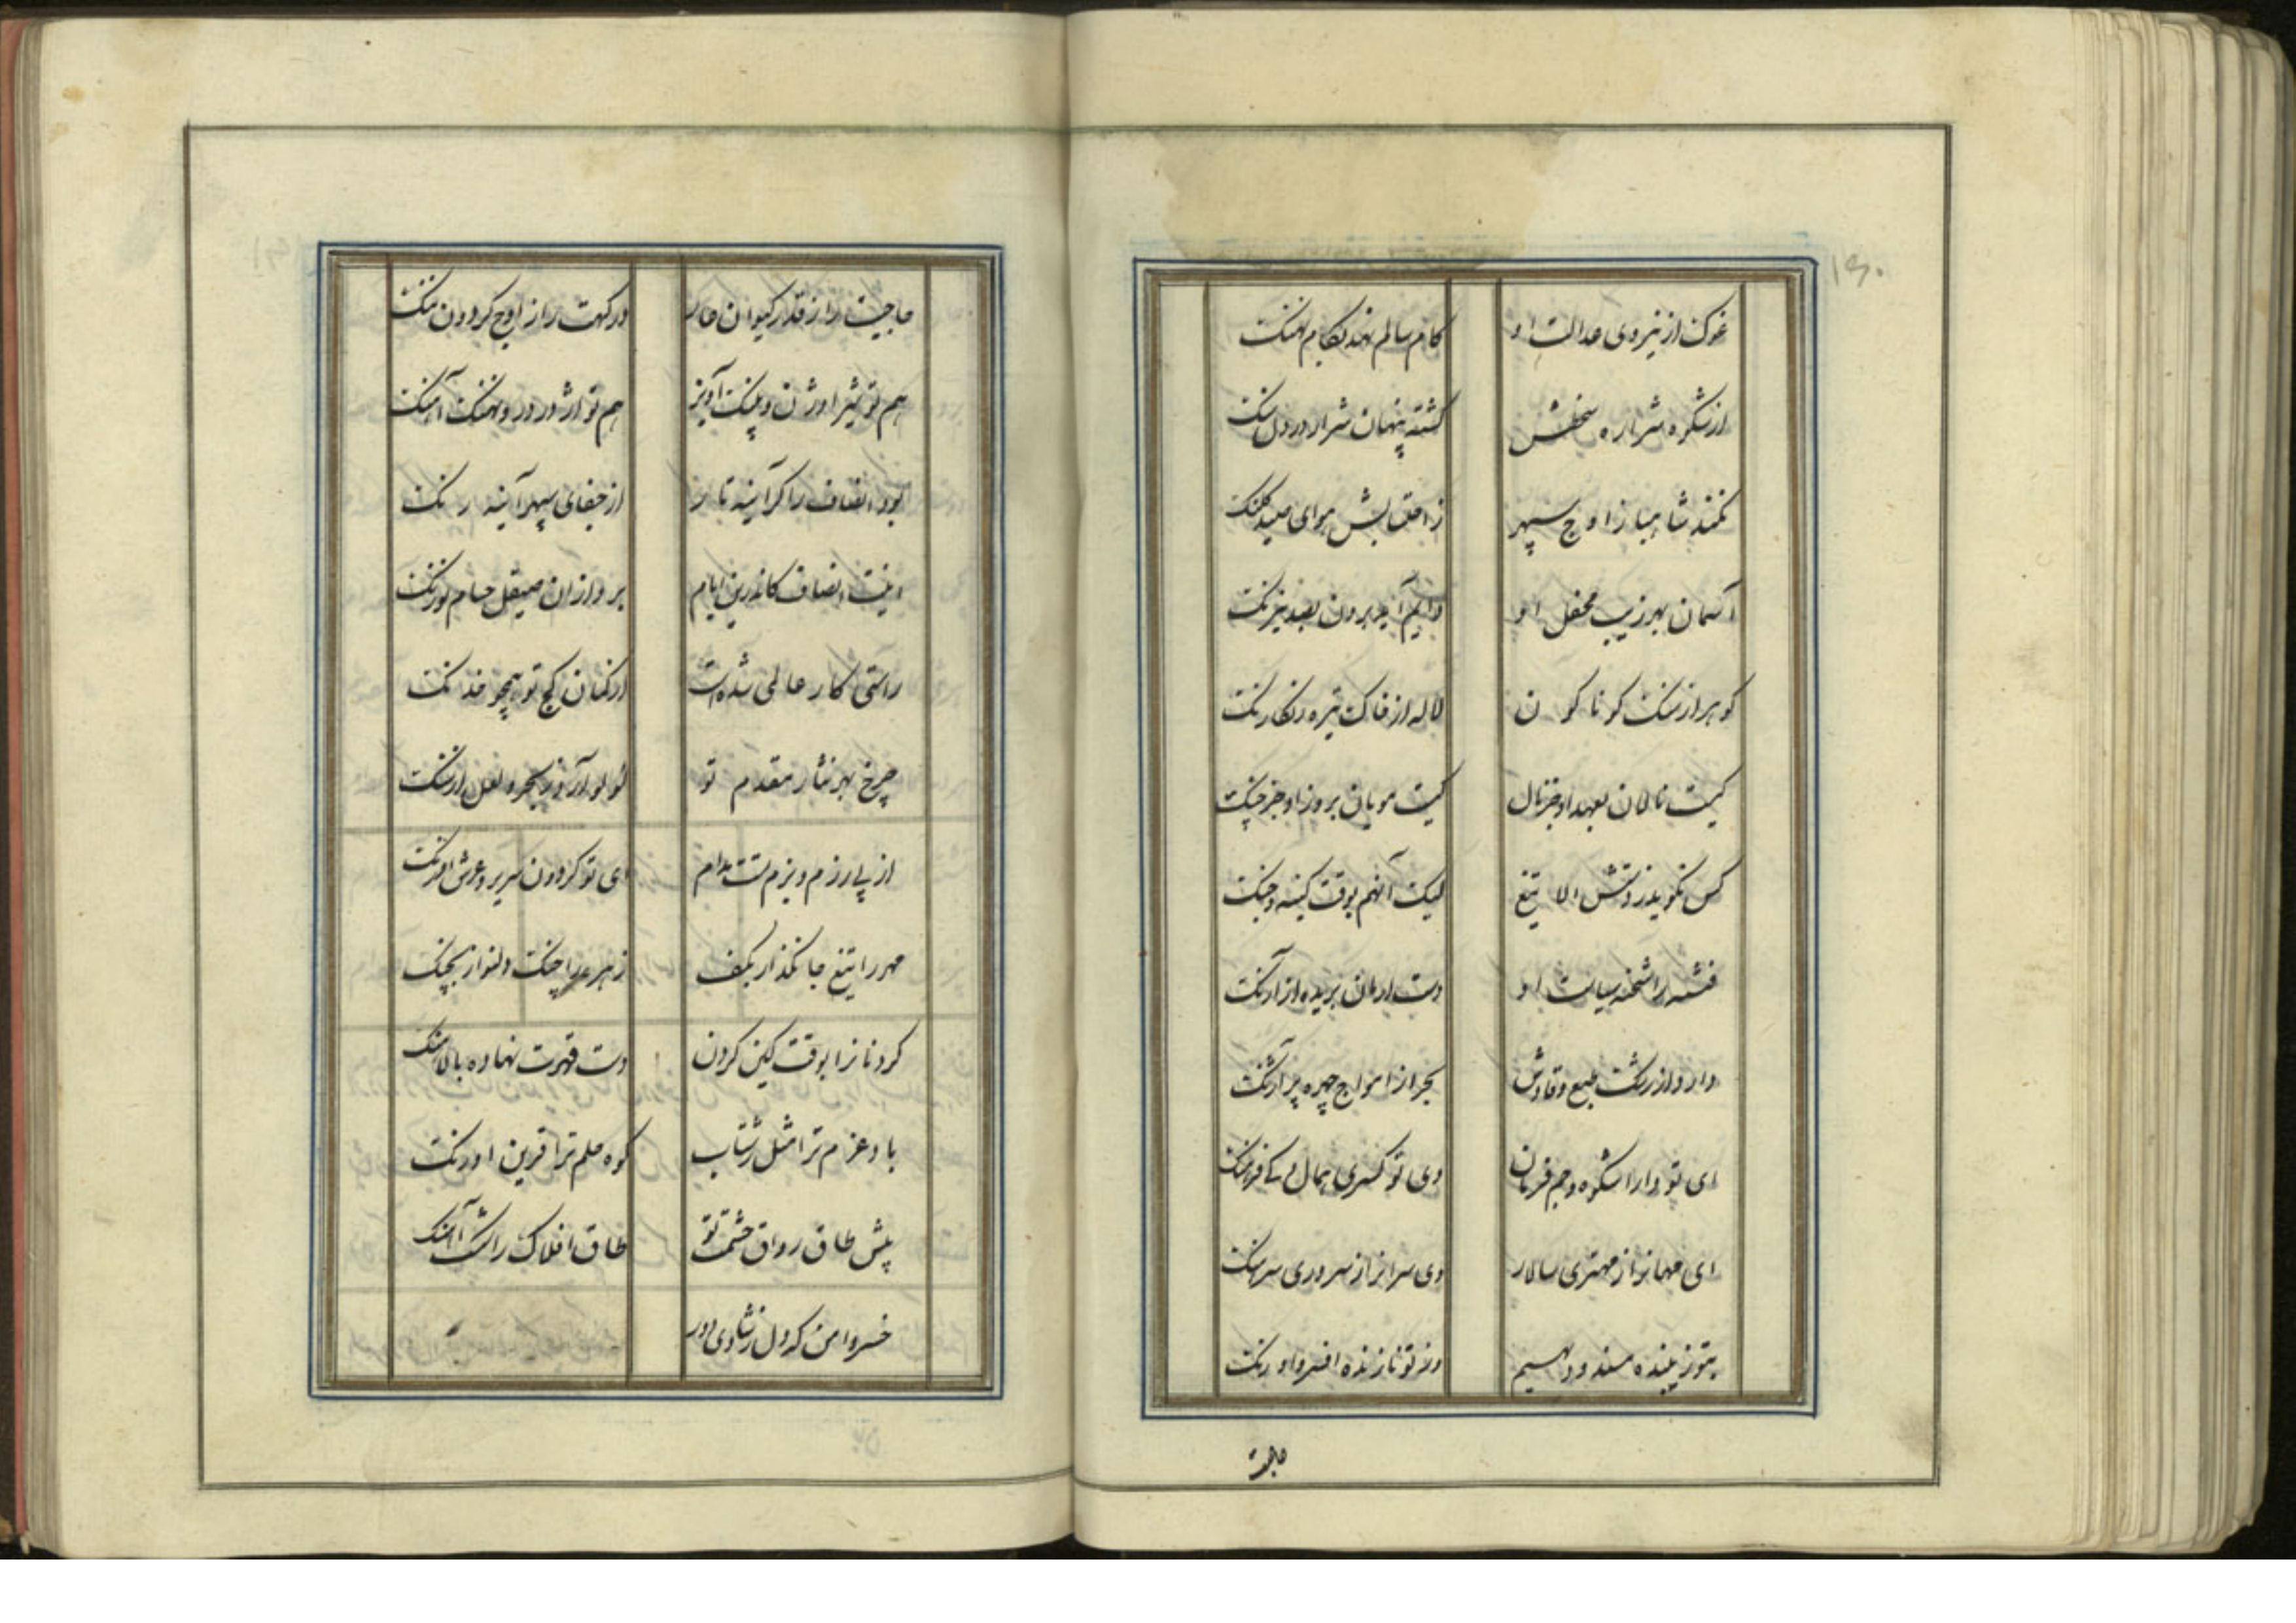 غوک از نیروی عدالت او کام سالم نهد بکام نهنک
از شکوه شراره سخطش کشته پنهان شرار در دل سنک
نکند شاهباز اوج سپهر ز احتسابش هوای صید کلنک
آسمان بهر زیب محفل او دایم آید برون بصد نیرنک
کوهر از سنک کوناکون لاله از خاک تیره رنکارنک
کیست نالان بعهد او جز نال کیست مویان بروز او جز چنک
کس نکوید ز روتش الا تیغ لیک آنهم بوقت کینه و جنک
فتنه را شحنه سیاست او دست از جان بریده از آرنک
دارد از رشک طبع وقادش بحر از امواج چهره پر آژنک
ای تو دارا شکوه و جم فرمان وی تو کسری همال و کی فرهنک
ای مهمانواز مهتری سالار وی سرافراز سروری سرهنک
بتو زیبنده مسند و دیهیم وز تو نازنده افسر و اورنک
حاجبت را ز قدر کیوان عار درکهت را ز اوج کردون ننک
هم تو شیر اوژن و پلنک آویز هم تو اژدر در و نهنک آهنک
بود انصاف را کر آینه تار از جفای سپهر آینه رنک
اینت انصاف کاندرین ایام برد از آن صیقل حسام تو زنک
راستی کار عالمی شده است از کمان کج تو همچو خدنک
چرخ بهر نثار مقدم تو لولو آرد ز بحر و لعل از سنک
از پی رزم و بزم تست مدام ای تو کردون سریر و عرش اورنک
مهر را تیغ جانکداز بکف زهره را چنک دلنواز بچنک
کردنانرا بوقت کین کردن دست قهرت نهاده پالاهنک
باد عزم ترا مثل بشتاب کوه حلم ترا قرین درنک
پیش طاق رواق حشمت تو طاق افلاک راست آهنک
خسروا من که دل ز شادی دور